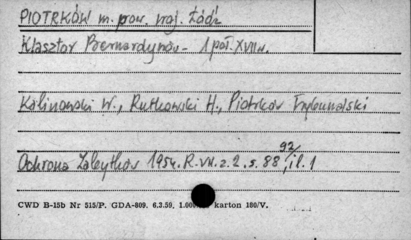 PIOTRKÓW m. pow. woj. Łódź
Klasztor Bernardynów - 1 poł. XVII w.
Kalinowski W., Rutkowski H., Piotrków Trybunalski
92
Ochrona Zabytków 1954. R. VII. z. 2. s. 88, il. 1
CWD B-15b Nr 515/P. GDA-809. 6.3.59. 1.00 karton 180/V.